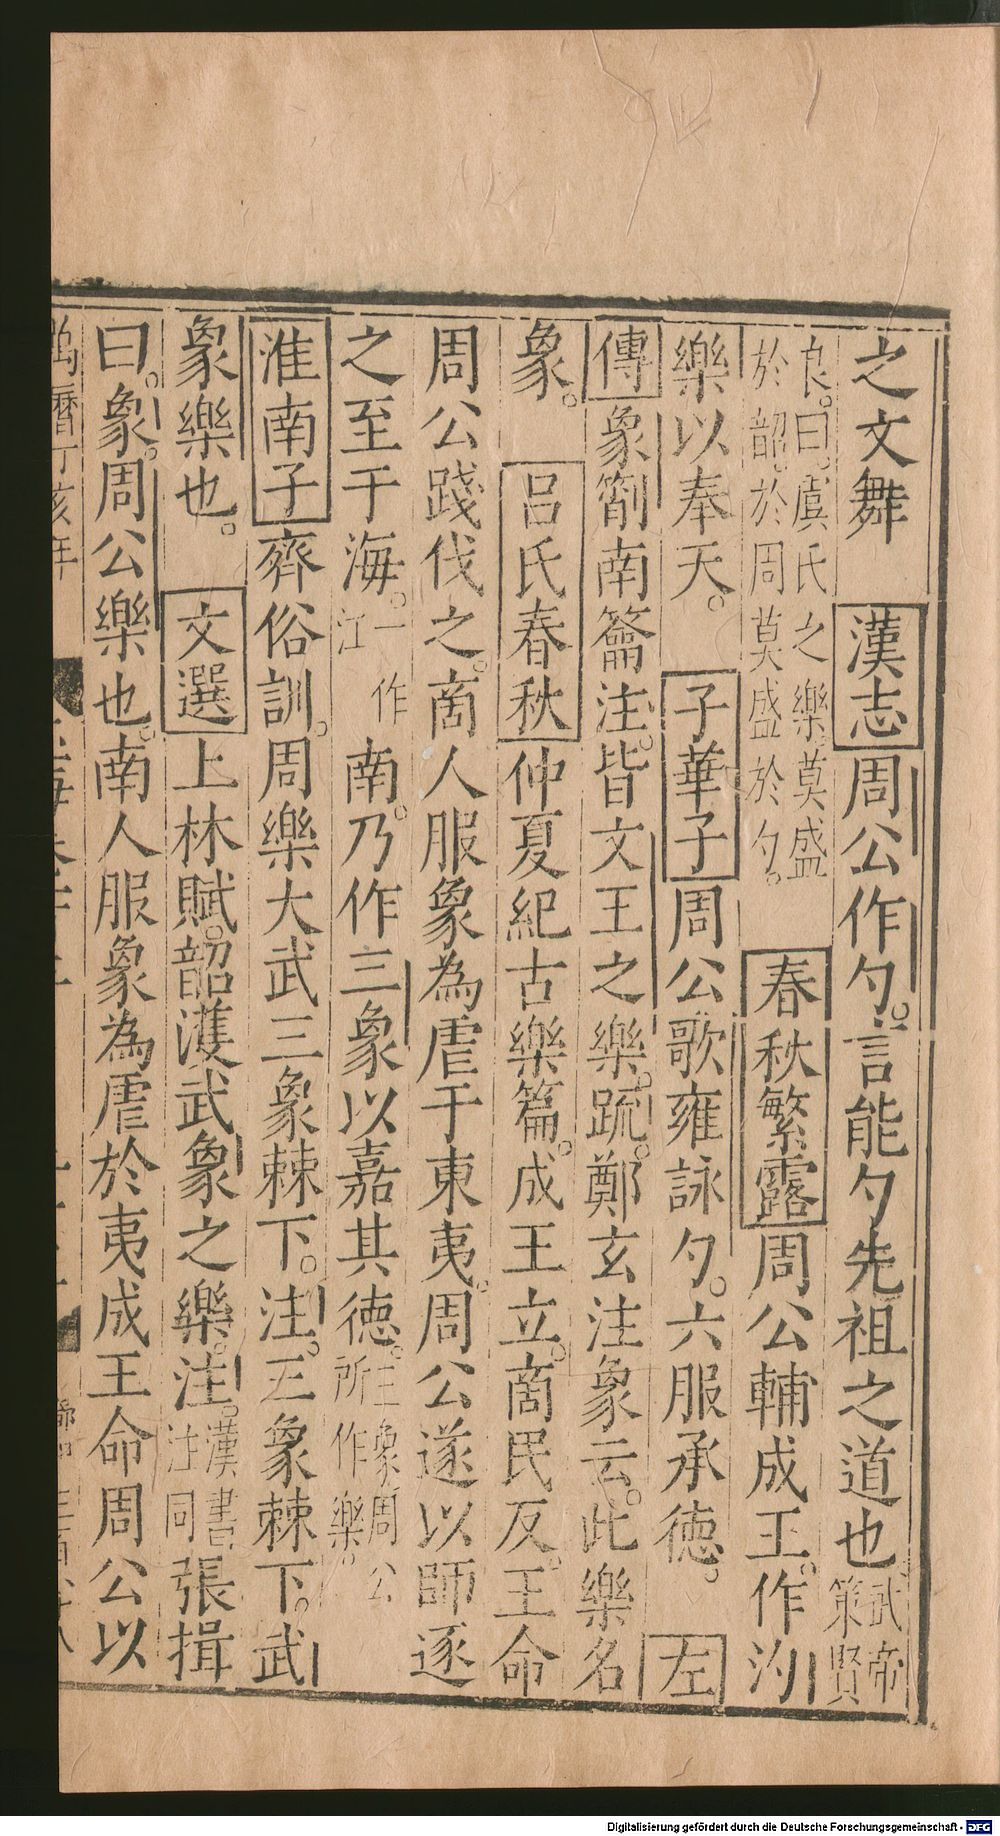 之文舞　漢志周公作勺。言能勺先祖之道也武帝策賢
良。曰。虞氏之樂莫盛於韶。於周莫盛於勺。　春秋繁露周公輔成王。作汋
樂以奉天。　子華子周公歌雍詠勺。六服承德。　左
傳象箾南籥注。皆文王之樂。疏。鄭玄注象云。此樂名
象。　呂氏春秋仲夏紀古樂篇。成王立。商民反。王命
周公踐伐之。商人服象為虐于東夷。周公遂以師逐
之至于海。一作江南。乃作三象以嘉其德。三象周公所作樂。
淮南子齊俗訓。周樂大武三象棘下。注。三象棘下。武
象樂也。　文選上林賦。韶濩武象之樂。注。漢書注同張揖
曰。象。周公樂也。南人服象為虐於夷成王命周公以
Digitalisierung gefördert durch die Deutsche Forschungsgemeinschaft - DFG